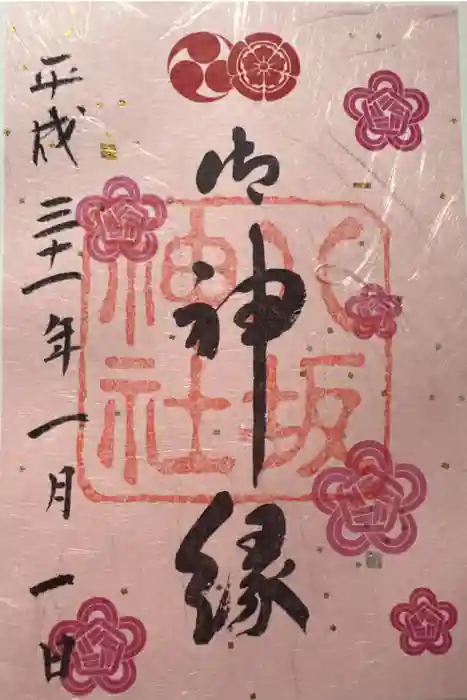 御神縁
八坂神社
平成三十一年一月一日